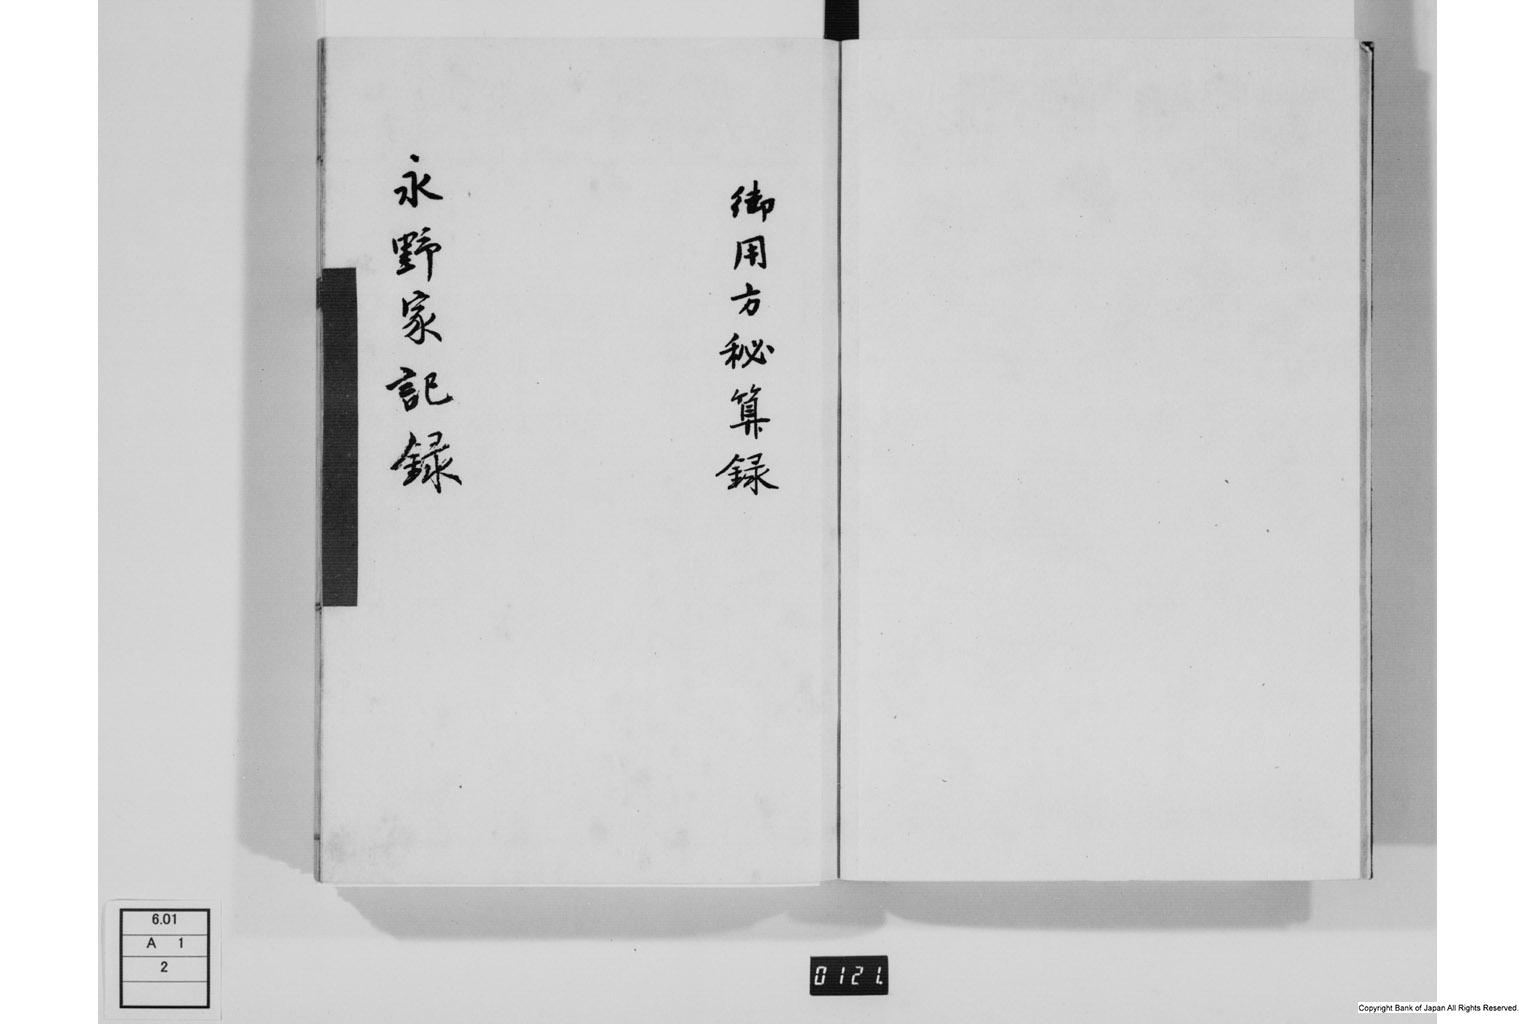 御用方秘算録
永野家記録
6.01
A 1
2
0121
Copyright Bank of Japan All Rights Reserved.